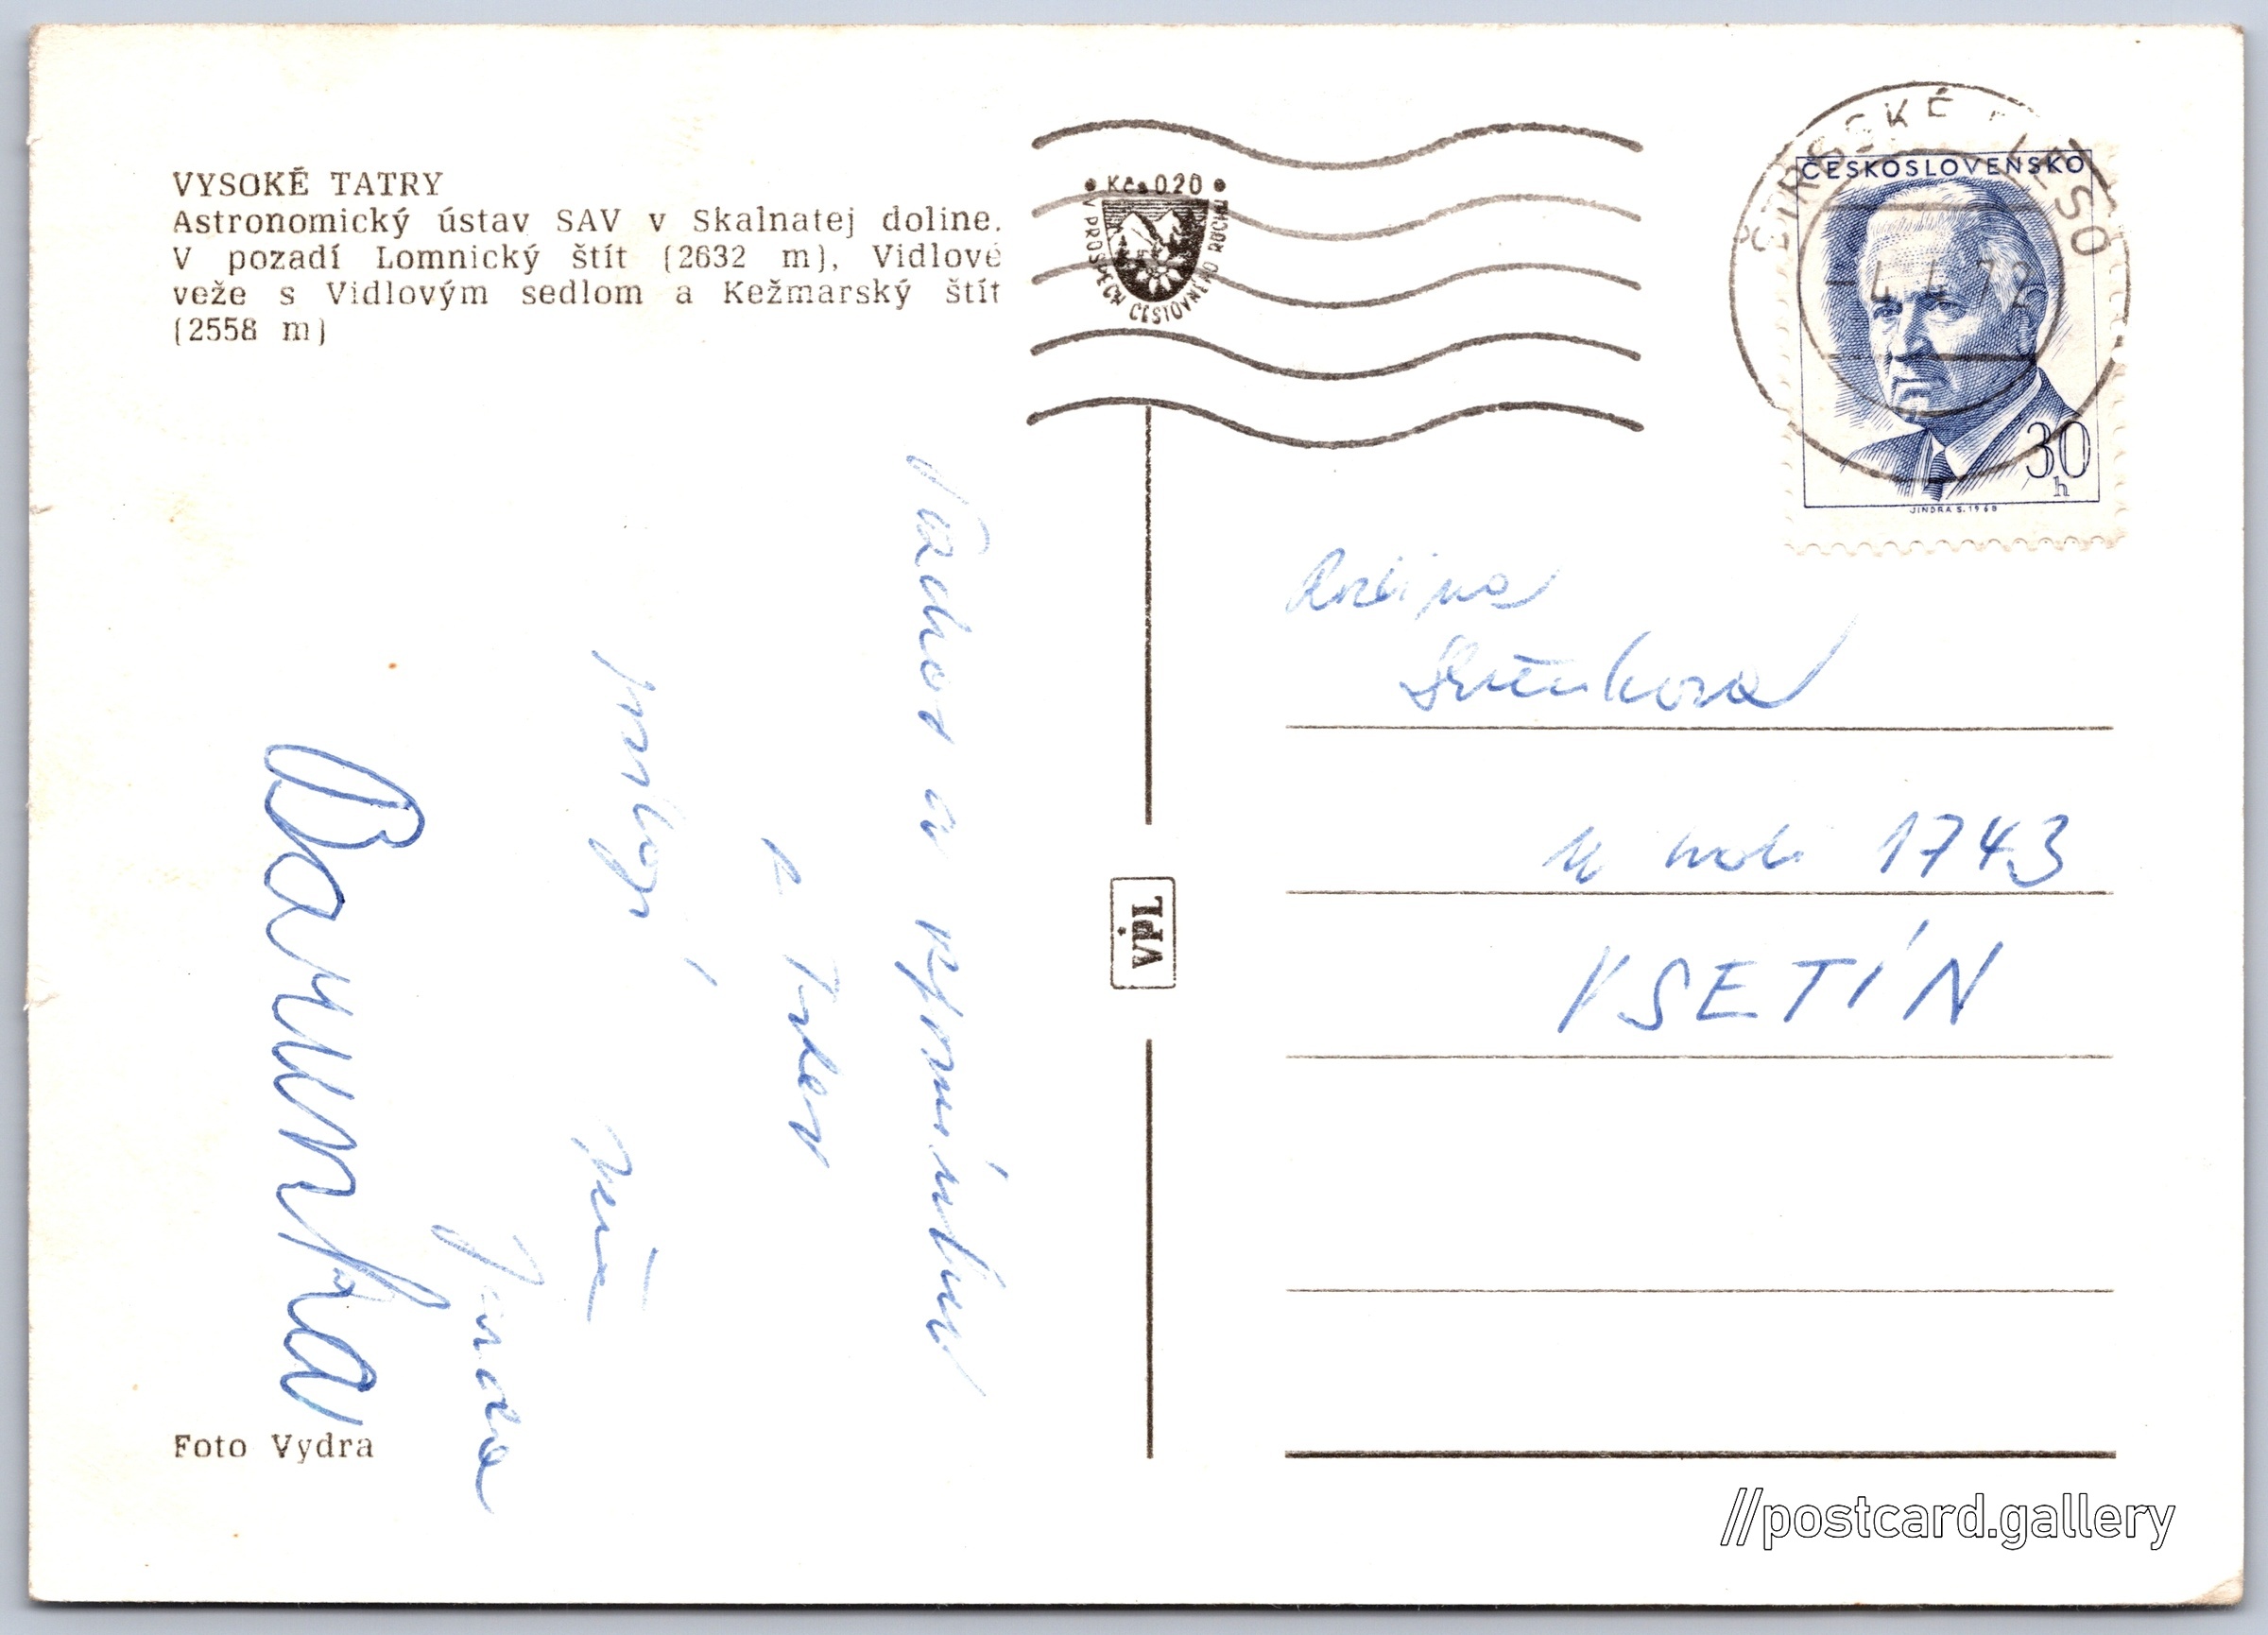 VYSOKÉ TATRY
Astronomický ústav SAV v Skalnatej doline.
V pozadí Lomnický štít (2632 m), Vidlové
veže s Vidlovým sedlom a Kežmarský štít
(2558 m)
• Kčs 0.20 •
V PROSPECH CESTOVNÉHO RUCHU
ŠTRBSKÉ PLESO
ČESKOSLOVENSKO
30
h
JINDRA S. 1968
Pozdrav a vzpomínku
z Tater
posílají
Jenda
Barunka
VPL
1743
VSETÍN
Foto Vydra
//postcard.gallery